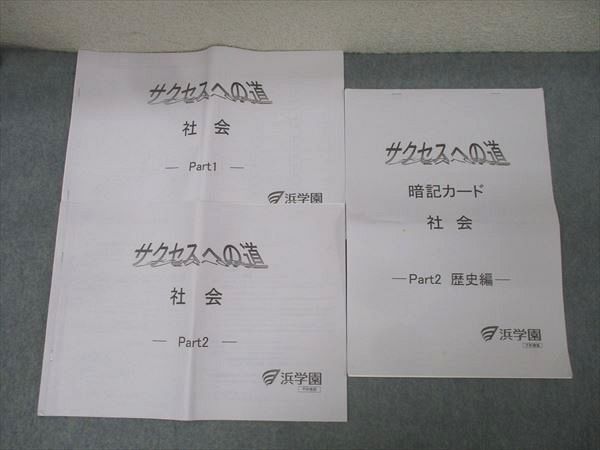 サクセスへの道
社会
― Part1 ―
浜学園
サクセスへの道
社会
― Part2 ―
浜学園
サクセスへの道
暗記カード
社会
―Part2 歴史編―
浜学園